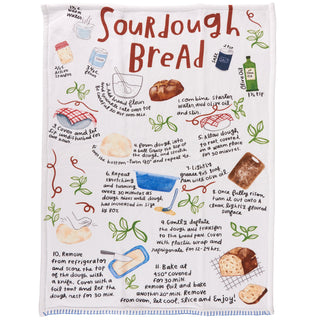 Sourdough
Bread
1. Combine starter,
water, and olive oil
and stir.
2. Add bread flour
Olive Oil
3. Cover and let
4. Form dough into
a ball. Grasp the top of
the dough, and stretch
the bottom. Turn 90° and repeat 4x.
5. Allow dough
to rest covered
in a warm place
for 30 minutes.
6. Repeat
stretching
and turning
over 30 minutes as
dough rises until dough
has increased in size
by 50%
7. Lightly
grease 9x5 bread
pan with olive oil.
8. Once fully risen,
turn it out onto a
clean, lightly floured
surface.
9. Gently deflate
the dough and transfer
to the bread pan. Cover
with plastic wrap and
refrigerate for 12-24 hrs.
10. Remove
from refrigerator
and score the top
of the dough with
a knife. Cover with a
foil tent and let the
dough rest for 30 min.
11. Bake at
450° covered
for 30 min.
Remove foil and bake
another 20 min. Remove
from oven, let cool, slice and Enjoy!